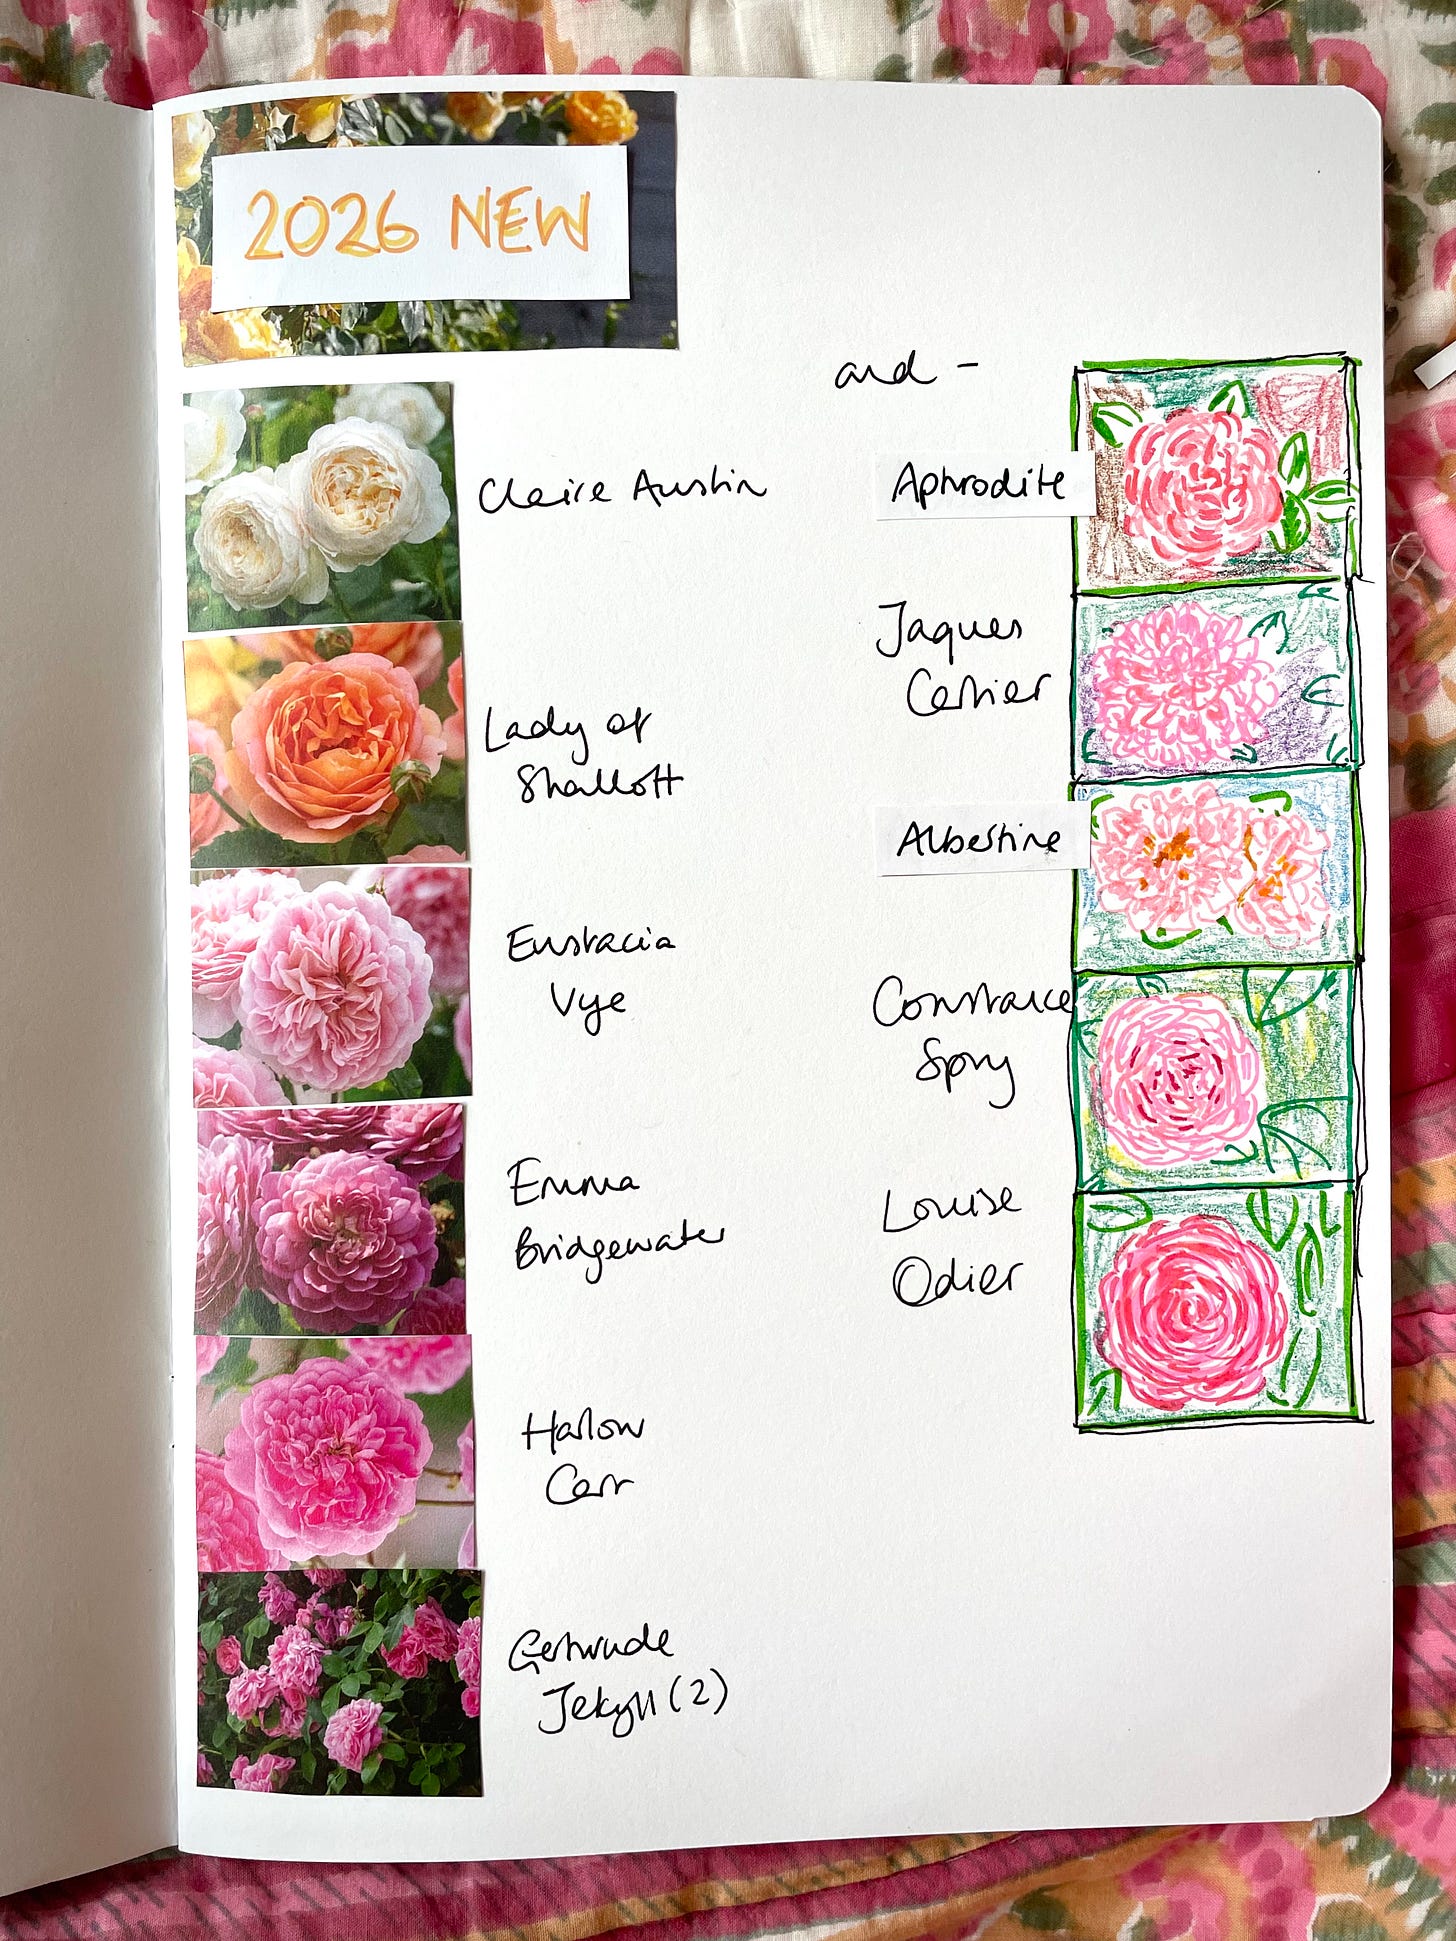 2026 NEW
Claire Austin
Lady of
Shallott
Eustacia
Vye
Emma
Bridgewater
Harlow
Carr
Gertrude
Jekyll (2)
and -
Aphrodite
Jaques
Cartier
Albertine
Constance
Spry
Louise
Odier